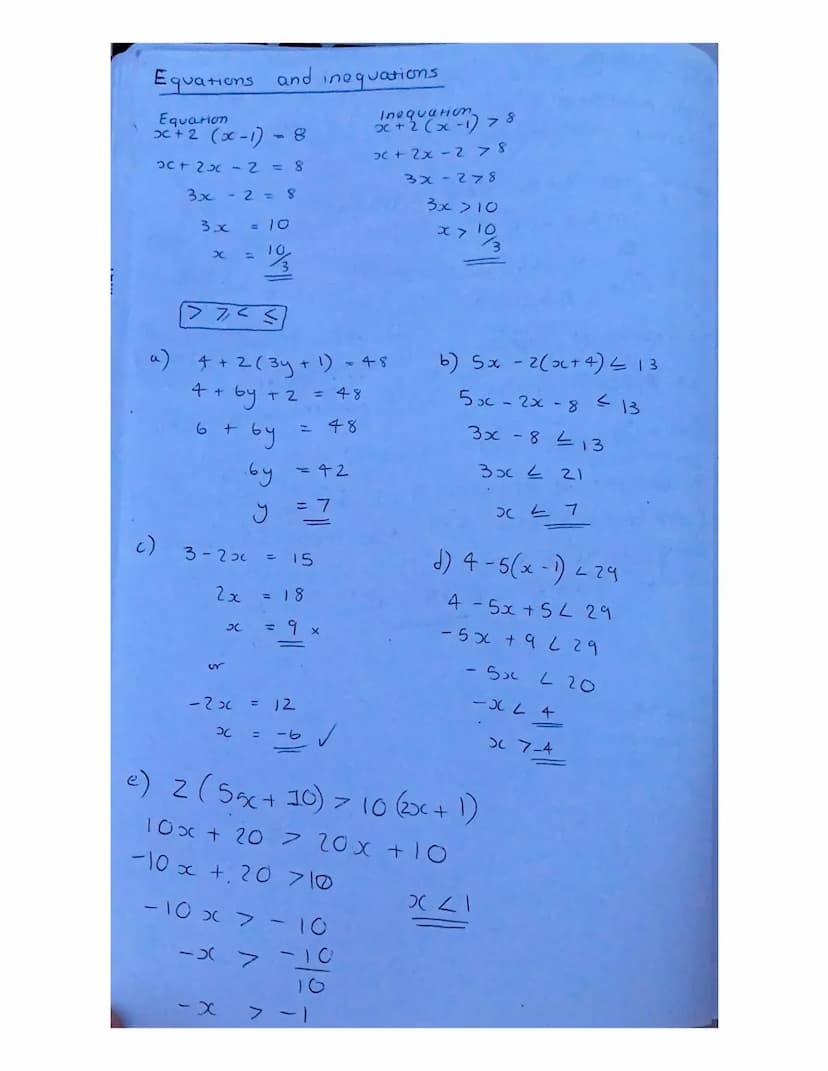 Equations and inequations
Equation
x+2 (x-1) = 8
x+2x - 2 = 8
3x - 2 = 8
3x = 10
x = 10/3
Inequation
x+2(x-1) > 8
x+2x-2 > 8
3x-2>8
3x >10
x > 10/3
> ⩾ < ≤
a) 4+2(3y+1) = 48
4+6y+2 = 48
6 + 6y = 48
6y = 42
y = 7
b) 5x -2(x+4) ≤ 13
5x - 2x - 8 ≤ 13
3x - 8 ≤ 13
3x ≤ 21
x ≤ 7
c) 3-2x = 15
2x = 18
x = 9 ×
or
-2x = 12
x = -6 ✓
d) 4-5(x-1) < 29
4 -5x+5 < 29
-5x + 9 < 29
- 5x < 20
-x < 4
x > -4
e) 2(5x+10) > 10(2x+1)
10x + 20 > 20x +10
-10x + 20 >10
-10x > -10
-x > -10/10
-x > -1
x < 1